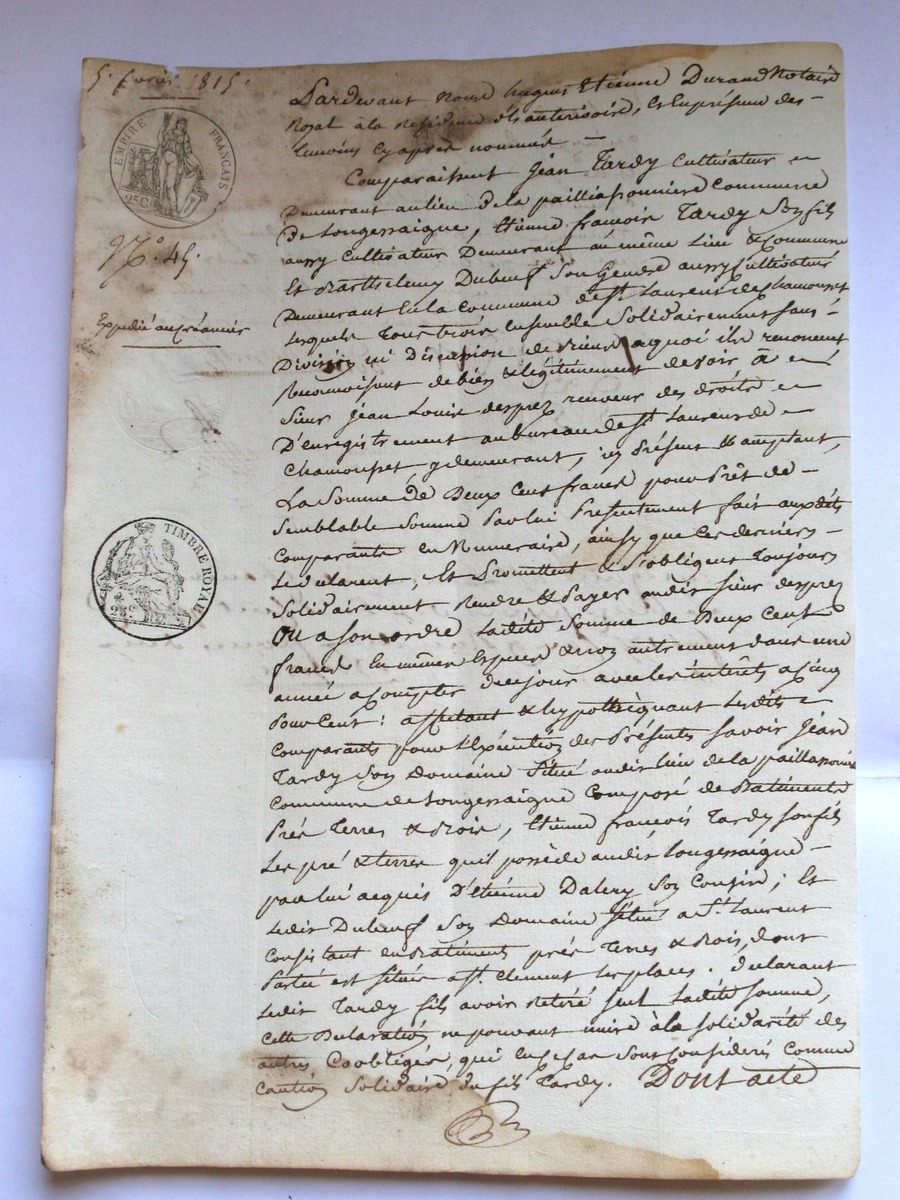 5. février 1815.
EMPIRE FRANÇAIS
25C
N.° 45.
Expedié au créancier
TIMBRE ROYAL
25C
Pardevant nous hugues Etienne Durand Notaire
Royal à la residence , & en présence des
temoins cy après nommés
Comparaissent Jean Tardy Cultivateur
Demeurant au lieu de la pailliassonniere Commune
de Longessaigne, Etienne françois Tardy Son fils
aussy Cultivateur Demeurant au même lieu & Commune
Et Barthelemy Dubeuf Son Gendre aussy Cultivateur
Demeurant En la Commune de St. Laurent de chamousset
Lesquels tous trois Ensemble Solidairement sans
Division ni Discussion de a quoi ils renoncent
Reconnoissent de bien & légitimement devoir à
Sieur Jean Louis desprez receveur des droits
D'enregistrement au bureau de St. Laurent de
Chamousset y demeurant, icy Présent & acceptant,
La Somme de Deux Cent francs pour Prêt de
Semblable Somme Par lui Présentement fait auxdits
Comparants en Numeraire, ainsy que Ces derniers
Le declarent, Et Promettent & S'obligent toujours
Solidairement Rendre & Payer audit Sieur desprez
Ou a son ordre Ladite Somme de Deux Cent
francs En mêmes Especes & non autrement dans une
année a Compter de ce jour avec les intérêts a Cinq
Pour Cent : affectant & hypothéquant Lesdits
Comparants pour L'Exécution des Présentes Savoir Jean
Tardy Son Domaine Situé audit lieu de la paillassonniere
Commune de Longessaigne Composé de Batiments
Prés Terres & Bois, Etienne françois Tardy son fils
Les pré & terres qu'il possède audit Longessaigne
par lui acquis D'Etienne Dalery Son Cousin ; Et
Ledit Dubeuf Son Domaine Situé a St. Laurent
Consistant en Batiments prés Terres & Bois, dont
Partie est Située a St. Clement les places . Declarant
Ledit Tardy fils avoir Retiré Seul Ladite Somme,
Cette Declaration ne pouvant nuire à la Solidarité des
autres Coobligés, qui En ce Cas Sont Considerés Comme
Caution Solidaire du fils Tardy. Dont acte